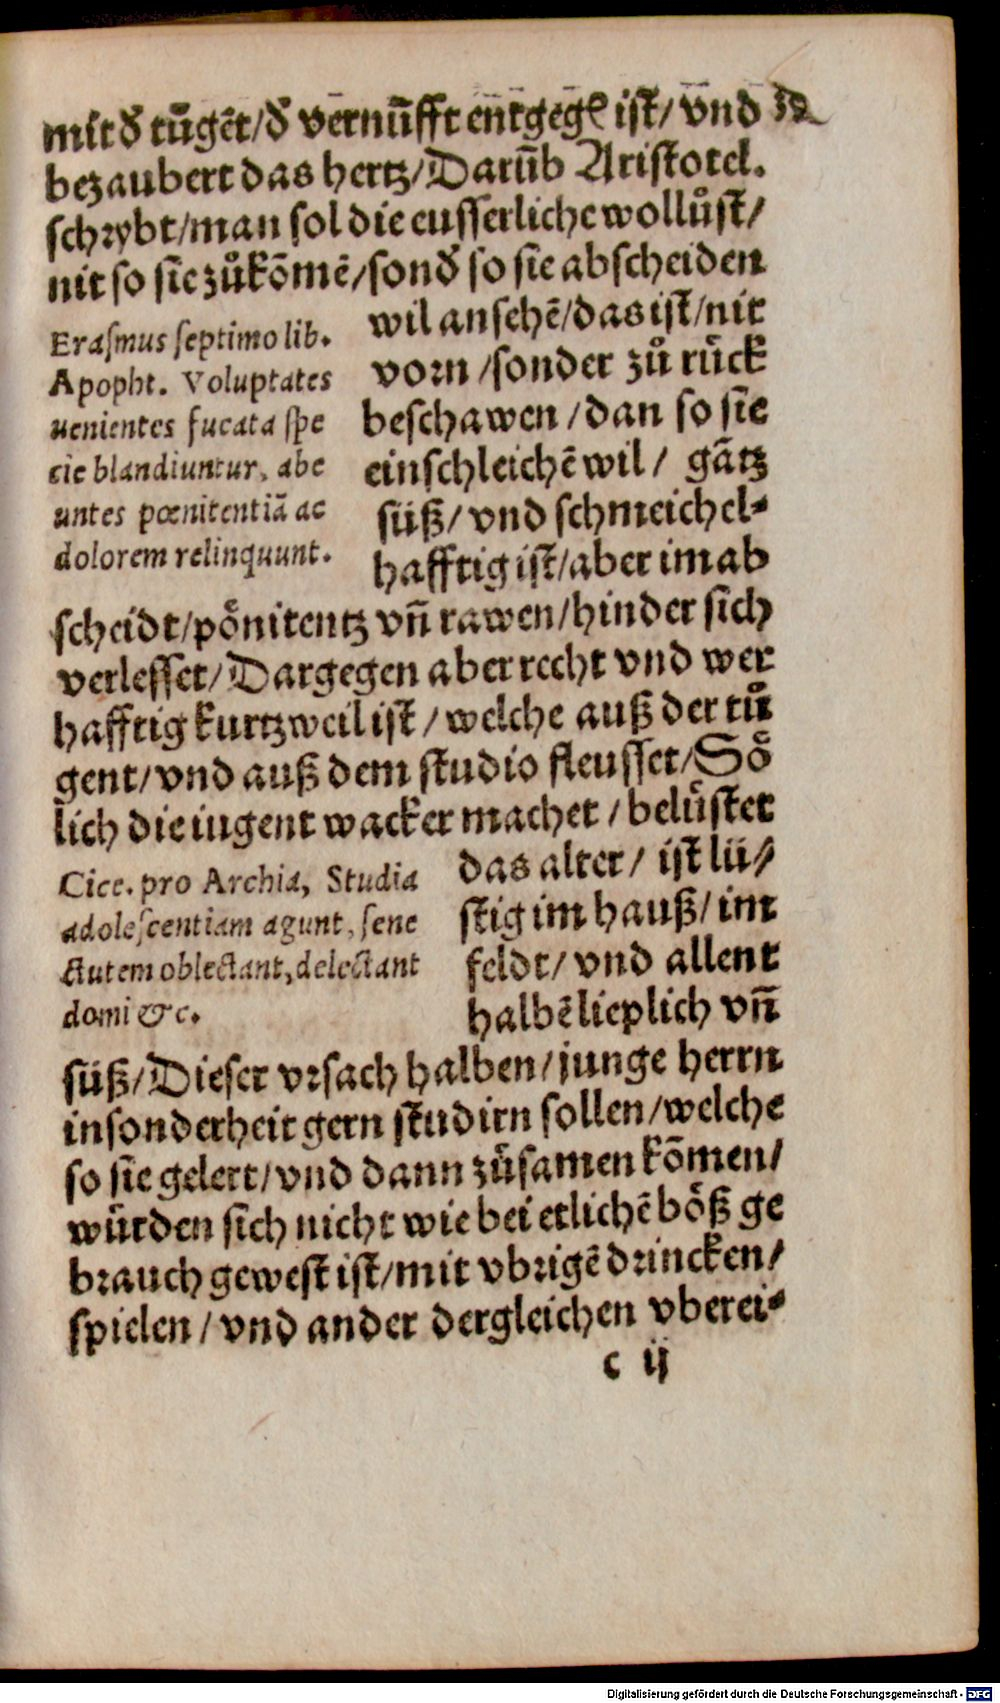 mit đ tůgēt/đ vernūfft entgegē ist/ vnd
bezaubert das hertz/Darūb Aristotel.
schrybt/man sol die eusserliche wollůst/
nit so sie zůkōmē/sonđ so sie abscheiden
wil ansehē/das ist/nit
vorn /sonder zů rück
beschawen /dan so sie
einschleichē wil/ gātz
süß/ vnd schmeichel-
hafftig ist/aber im ab
Erasmus septimo lib.
Apopht. Voluptates
uenientes fucata spe
cie blandiuntur, abe
untes pœnitentiā ac
dolorem relinquunt.
scheidt/pönitentz vñ rawen/hinder sich
verlesset/Dargegen aber recht vnd wer
hafftig kurtzweil ist /welche auß der tů
gent/vnd auß dem studio fleusset/Sö
lich die iugent wacker machet /belüstet
das alter/ ist lü//
stig im hauß/im
feldt/ vnd allent
halbē lieplich vñ
Cice. pro Archia, Studia
adolescentiam agunt, sene
ctutem oblectant, delectant
domi &c.
süß/Dieser vrsach halben/junge herrn
insonderheit gern studirn sollen/welche
so sie gelert/vnd dann zůsamen kōmen/
würden sich nicht wie bei etlichē böß ge
brauch gewest ist/mit vbrigē drincken/
spielen /vnd ander dergleichen vberei-
c ij
Digitalisierung gefördert durch die Deutsche Forschungsgemeinschaft - DFG